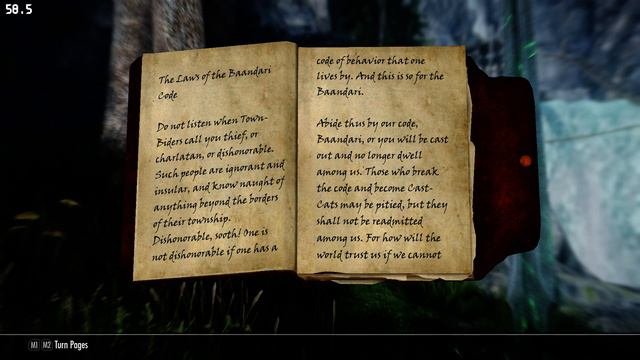 58.5
The Laws of the Baandari
Code
Do not listen when Town-
Biders call you thief, or
charlatan, or dishonorable.
Such people are ignorant and
insular, and know naught of
anything beyond the borders
of their township.
Dishonorable, sooth! One is
not dishonorable if one has a
code of behavior that one
lives by. And this is so for the
Baandari.
Abide thus by our code,
Baandari, or you will be cast
out and no longer dwell
among us. Those who break
the code and become Cast-
Cats may be pitied, but they
shall not be readmitted
among us. For how will the
world trust us if we cannot
M1 M2 Turn Pages